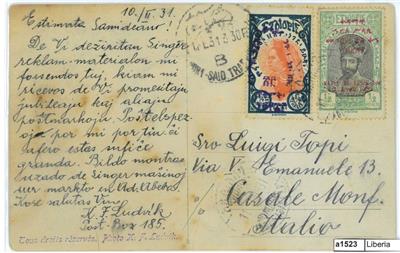 10./II. 31.
Estimata Samideano!
De Vi deziritan Singer
reklam-materialon mi
forsendos tuj, kiam mi
ricevos de Vi promesitajn
jubileajn kaj aliajn
postmarkojn. Poŝtelspezo
ja por mi por tiu ĉi
afero estas sufiĉe
granda. Bildo montras
uzado de Singer maŝinoj
sur markto en Ad. Abeba.
Kore salutas Vin
K. F. Ludvík
Post-Box 185.
Tous droits réservés. Photo K. F. Ludvik
PORT-SAID
B
Sro Luigi Topi
Via V. Emanuele 13.
Casale Monf.
Italio
a1523 Liberia